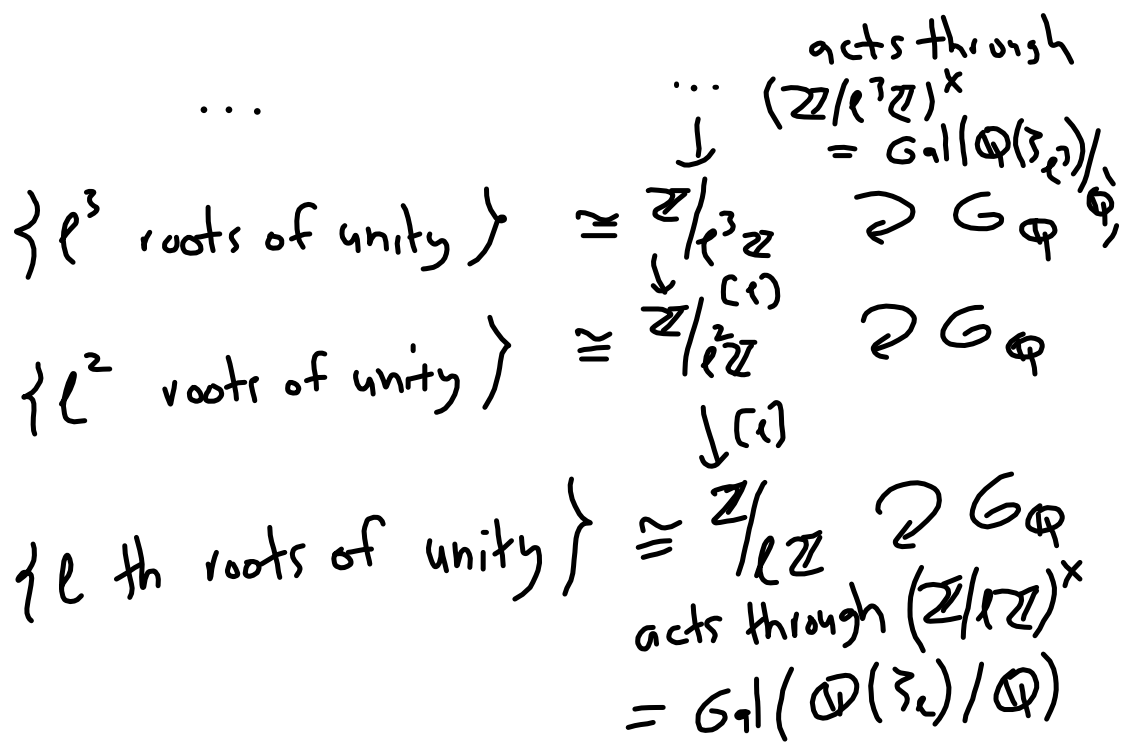 acts through
... ... (ℤ/ℓ³ℤ)ˣ
↓ = Gal(ℚ(ζ_ℓ³)/ℚ)
{ℓ³ roots of unity} ≅ ℤ/ℓ³ℤ ↻ G_ℚ
↓ [ℓ]
{ℓ² roots of unity} ≅ ℤ/ℓ²ℤ ↻ G_ℚ
↓ [ℓ]
{ℓ th roots of unity} ≅ ℤ/ℓℤ ↻ G_ℚ
acts through (ℤ/ℓℤ)ˣ
= Gal(ℚ(ζ_ℓ)/ℚ)